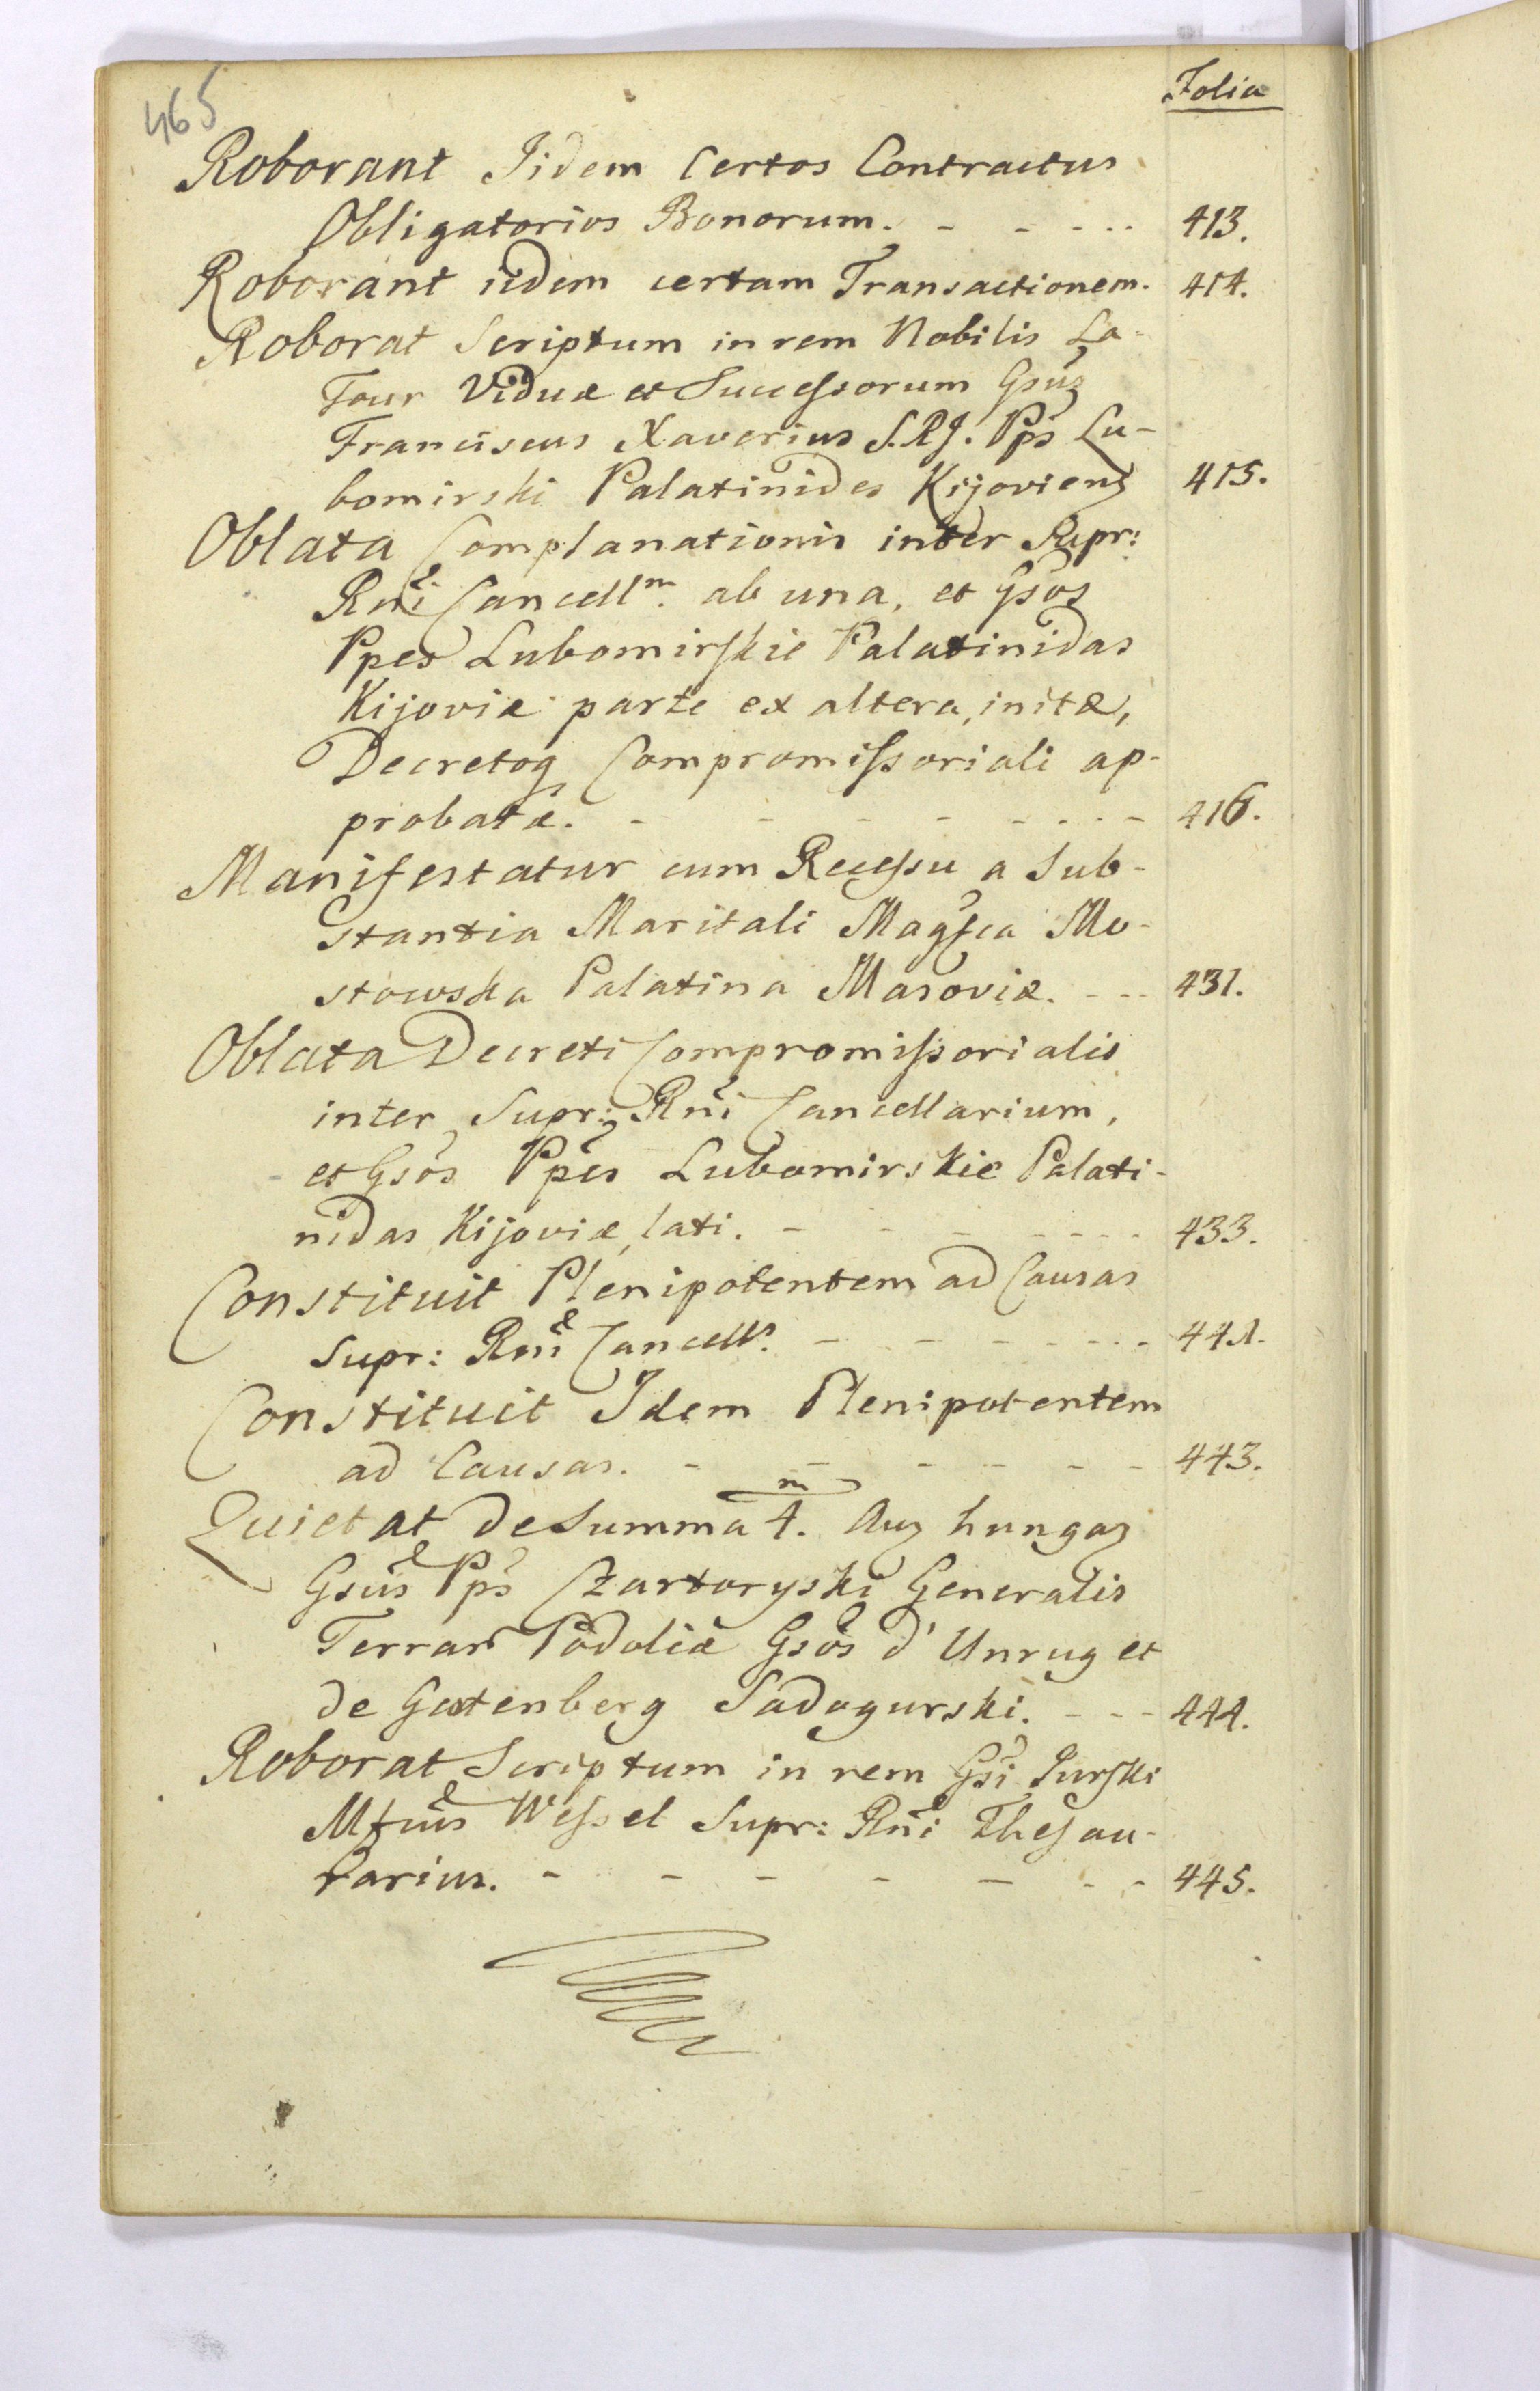 465
Folia
Roborant Iidem Certos Contractus
Obligatorios Bonorum. - - - - - 413.
Roborant iidem certam Transactionem. 414.
Roborat Scriptum in rem Nobilis La-
Four Viduæ et Successorum Gsus
Franciscus Xaverius S.R.I. Pps Lu-
bomirski Palatinides Kijoviens 415.
Oblata Complanationis inter Supr:
Rni Cancellm. ab una, et Gsos
Ppes Lubomirskie Palatinidas
Kijoviæ parte ex altera, initæ,
Decretoq Compromissoriali ap-
probatæ. - - - - - - - - 416.
Manifestatur cum Recessu a Sub-
stantia Maritali Magfca Mo-
stowska Palatina Masoviæ. - - - 431.
Oblata Decreti Compromissorialis
inter Supr: Rni Cancellarium,
et Gsos Ppes Lubomirskie Palati-
nidas Kijoviæ, lati. - - - - - - - 433.
Constituit Plenipotentem ad Causas
Supr: Rni Cancells. - - - - - - - 441.
Constituit Idem Plenipotentem
ad Causas. - - - - - - 443.
Quietat de Summa 4.m Aur hungar
Gsus Pps Czartoryski Generalis
Terrar Podoliæ Gsos d'Unrug et
de Gatenberg Sadogurski. - - - 444.
Roborat Scriptum in rem Gsi Turski
Mfcus Wessel Supr: Rni Thesau-
rarius. - - - - - - - 445.